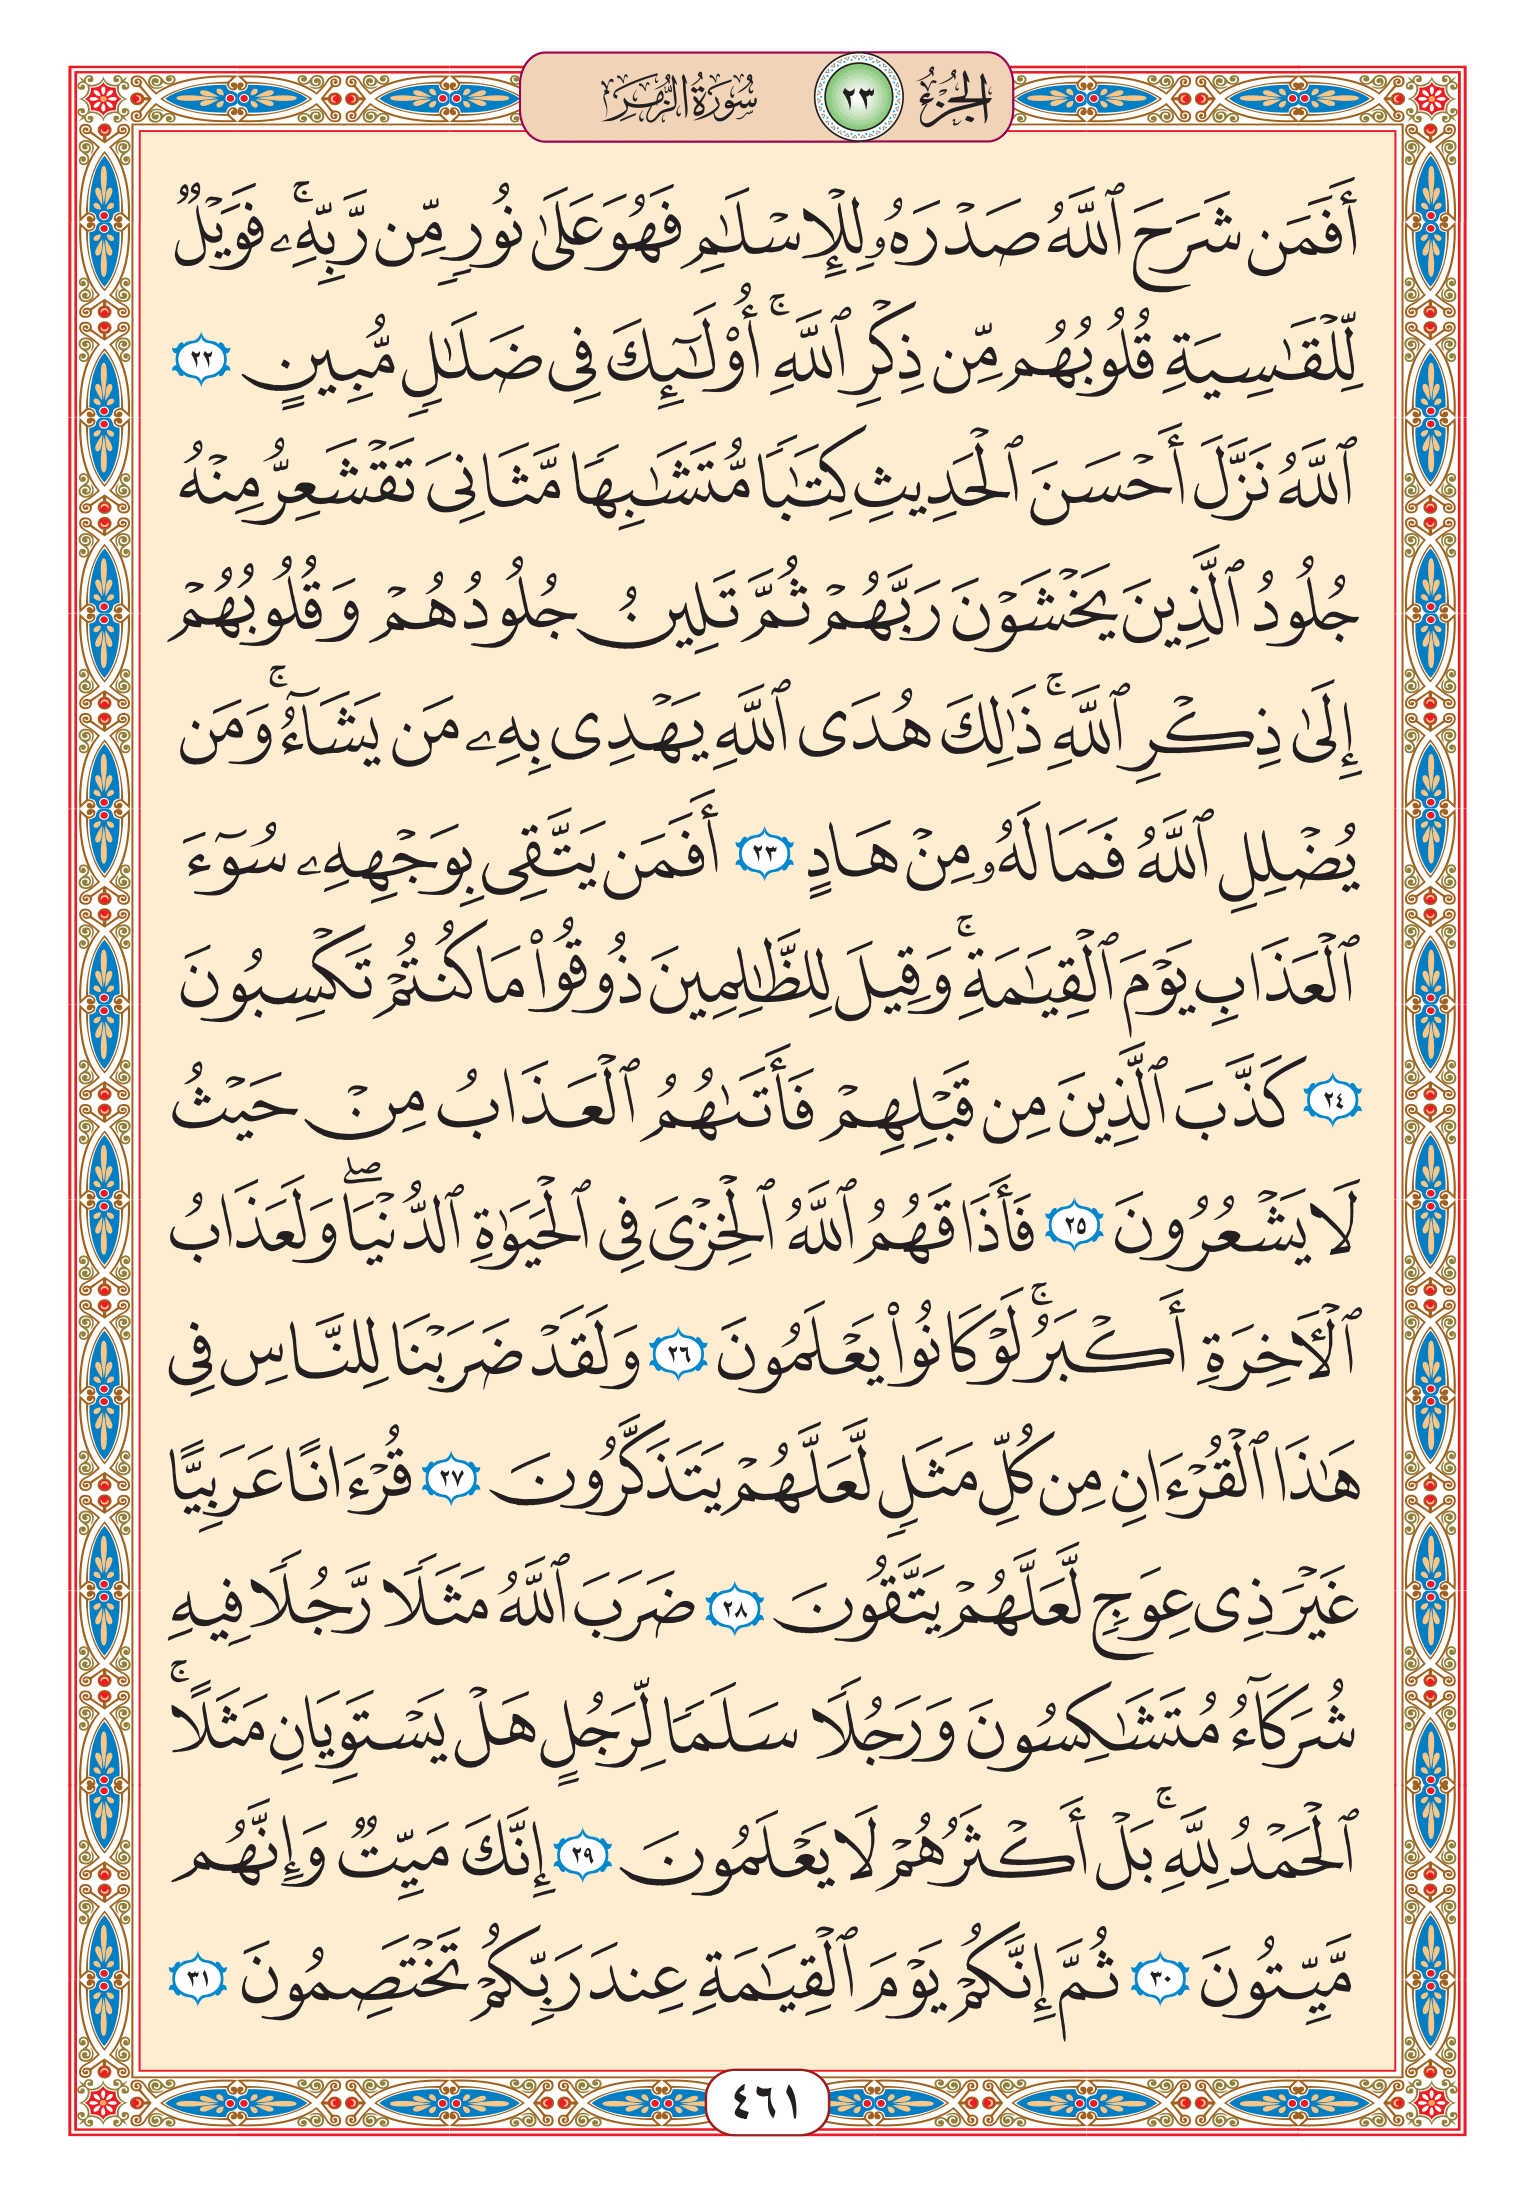 الجزء ٢٣ سورة الزمر
أَفَمَن شَرَحَ ٱللَّهُ صَدْرَهُۥ لِلْإِسْلَـٰمِ فَهُوَ عَلَىٰ نُورٍ مِّن رَّبِّهِۦ ۚ فَوَيْلٌ
لِّلْقَـٰسِيَةِ قُلُوبُهُم مِّن ذِكْرِ ٱللَّهِ ۚ أُو۟لَـٰٓئِكَ فِى ضَلَـٰلٍ مُّبِينٍ ٢٢
ٱللَّهُ نَزَّلَ أَحْسَنَ ٱلْحَدِيثِ كِتَـٰبًا مُّتَشَـٰبِهًا مَّثَانِىَ تَقْشَعِرُّ مِنْهُ
جُلُودُ ٱلَّذِينَ يَخْشَوْنَ رَبَّهُمْ ثُمَّ تَلِينُ جُلُودُهُمْ وَقُلُوبُهُمْ
إِلَىٰ ذِكْرِ ٱللَّهِ ۚ ذَٰلِكَ هُدَى ٱللَّهِ يَهْدِى بِهِۦ مَن يَشَآءُ ۚ وَمَن
يُضْلِلِ ٱللَّهُ فَمَا لَهُۥ مِنْ هَادٍ ٢٣ أَفَمَن يَتَّقِى بِوَجْهِهِۦ سُوٓءَ
ٱلْعَذَابِ يَوْمَ ٱلْقِيَـٰمَةِ ۚ وَقِيلَ لِلظَّـٰلِمِينَ ذُوقُوا۟ مَا كُنتُمْ تَكْسِبُونَ
٢٤ كَذَّبَ ٱلَّذِينَ مِن قَبْلِهِمْ فَأَتَىٰهُمُ ٱلْعَذَابُ مِنْ حَيْثُ
لَا يَشْعُرُونَ ٢٥ فَأَذَاقَهُمُ ٱللَّهُ ٱلْخِزْىَ فِى ٱلْحَيَوٰةِ ٱلدُّنْيَا ۖ وَلَعَذَابُ
ٱلْـَٔاخِرَةِ أَكْبَرُ ۚ لَوْ كَانُوا۟ يَعْلَمُونَ ٢٦ وَلَقَدْ ضَرَبْنَا لِلنَّاسِ فِى
هَـٰذَا ٱلْقُرْءَانِ مِن كُلِّ مَثَلٍ لَّعَلَّهُمْ يَتَذَكَّرُونَ ٢٧ قُرْءَانًا عَرَبِيًّا
غَيْرَ ذِى عِوَجٍ لَّعَلَّهُمْ يَتَّقُونَ ٢٨ ضَرَبَ ٱللَّهُ مَثَلًا رَّجُلًا فِيهِ
شُرَكَآءُ مُتَشَـٰكِسُونَ وَرَجُلًا سَلَمًا لِّرَجُلٍ هَلْ يَسْتَوِيَانِ مَثَلًا ۚ
ٱلْحَمْدُ لِلَّهِ ۚ بَلْ أَكْثَرُهُمْ لَا يَعْلَمُونَ ٢٩ إِنَّكَ مَيِّتٌ وَإِنَّهُم
مَّيِّتُونَ ٣٠ ثُمَّ إِنَّكُمْ يَوْمَ ٱلْقِيَـٰمَةِ عِندَ رَبِّكُمْ تَخْتَصِمُونَ ٣١
٤٦١